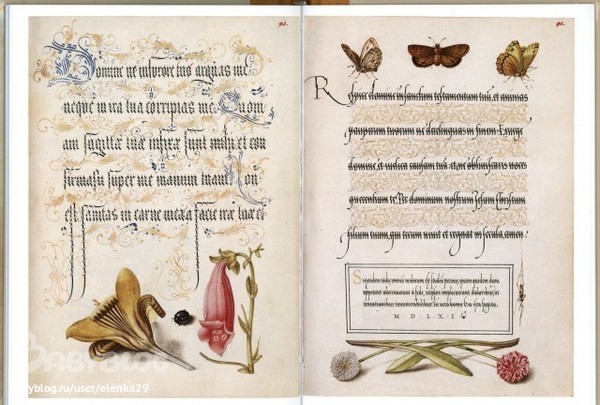 93.
Domine ne in furore tuo arguas me
neque in ira tua corripias me. Quoni
am sagittæ tuæ infixæ sunt mihi, et con
firmasti super me manum tuam. Non
est sanitas in carne mea a facie iræ tuæ et
Respice domine in sanctum testamentum tuum, et animas
pauperum tuorum ne derelinquas in finem. Exurge
domine, et iudica causam tuam: et ne obliviscaris voces
quærentium te. Per dominum nostrum Jesum Christum
filium tuum, qui tecum vivit et regnat in secula, amen:
M D LXII
BABYBLOG
yblog.ru/user/elenka29